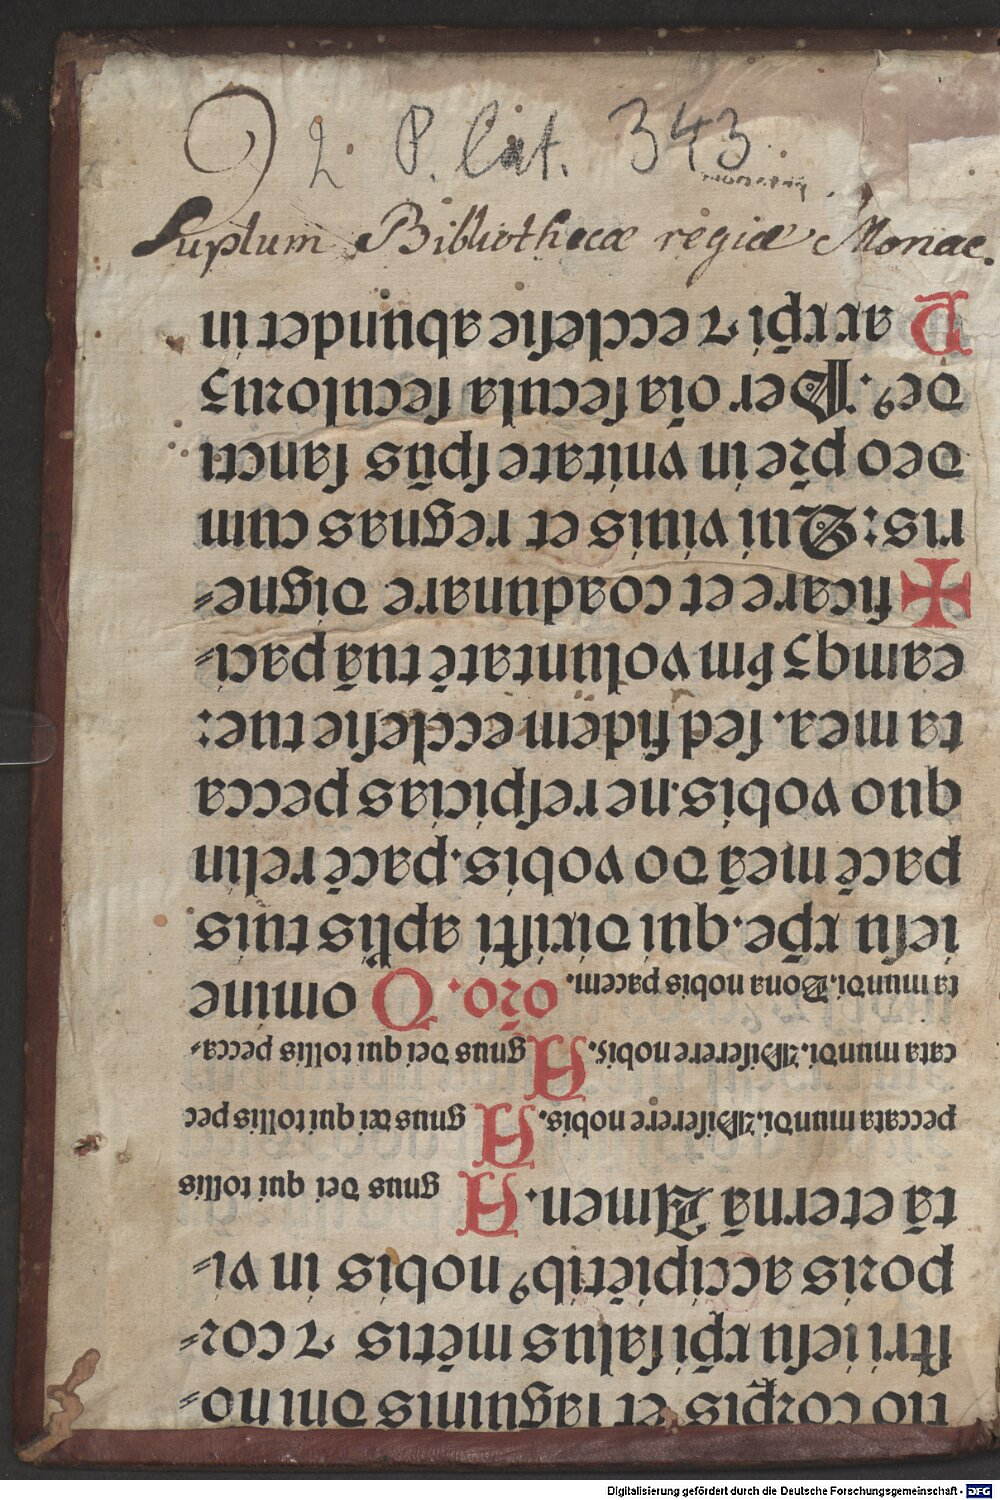 2 P. lat. 343
Duplum Bibliothecæ regiæ Monac.
tio corꝑis et sāguinis dn̄i no⸗
ſtri ieſu xp̄i ſalus mētis ⁊ cor⸗
poris accipiētibꝰ nobis in vi⸗
tā eternā Amen. Agnus dei qui tollis
peccata mundi. Miſerere nobis. Agnus dei qui tollis pec
cata mundi. Miſerere nobis. Agnus dei qui tollis pecca⸗
ta mundi. Dona nobis pacem. or̄o. Domine
ieſu xp̄e. qui dixiſti apl̄is tuis.
pacē meā do vobis. pacē relin
quo vobis. ne reſpicias pecca
ta mea. ſed fidem eccleſie tue:
eamqꝫ ẜm voluntatē tuā paci⸗
✠ ficare et coadunare digne⸗
ris: Qui viuis et regnas cum
deo pr̄e in vnitate ſpūs ſancti
deꝰ. Per oīa ſecula ſeculorꝫ
Pax xp̄i ⁊ eccleſie abundet in
Digitalisierung gefördert durch die Deutsche Forschungsgemeinschaft - DFG